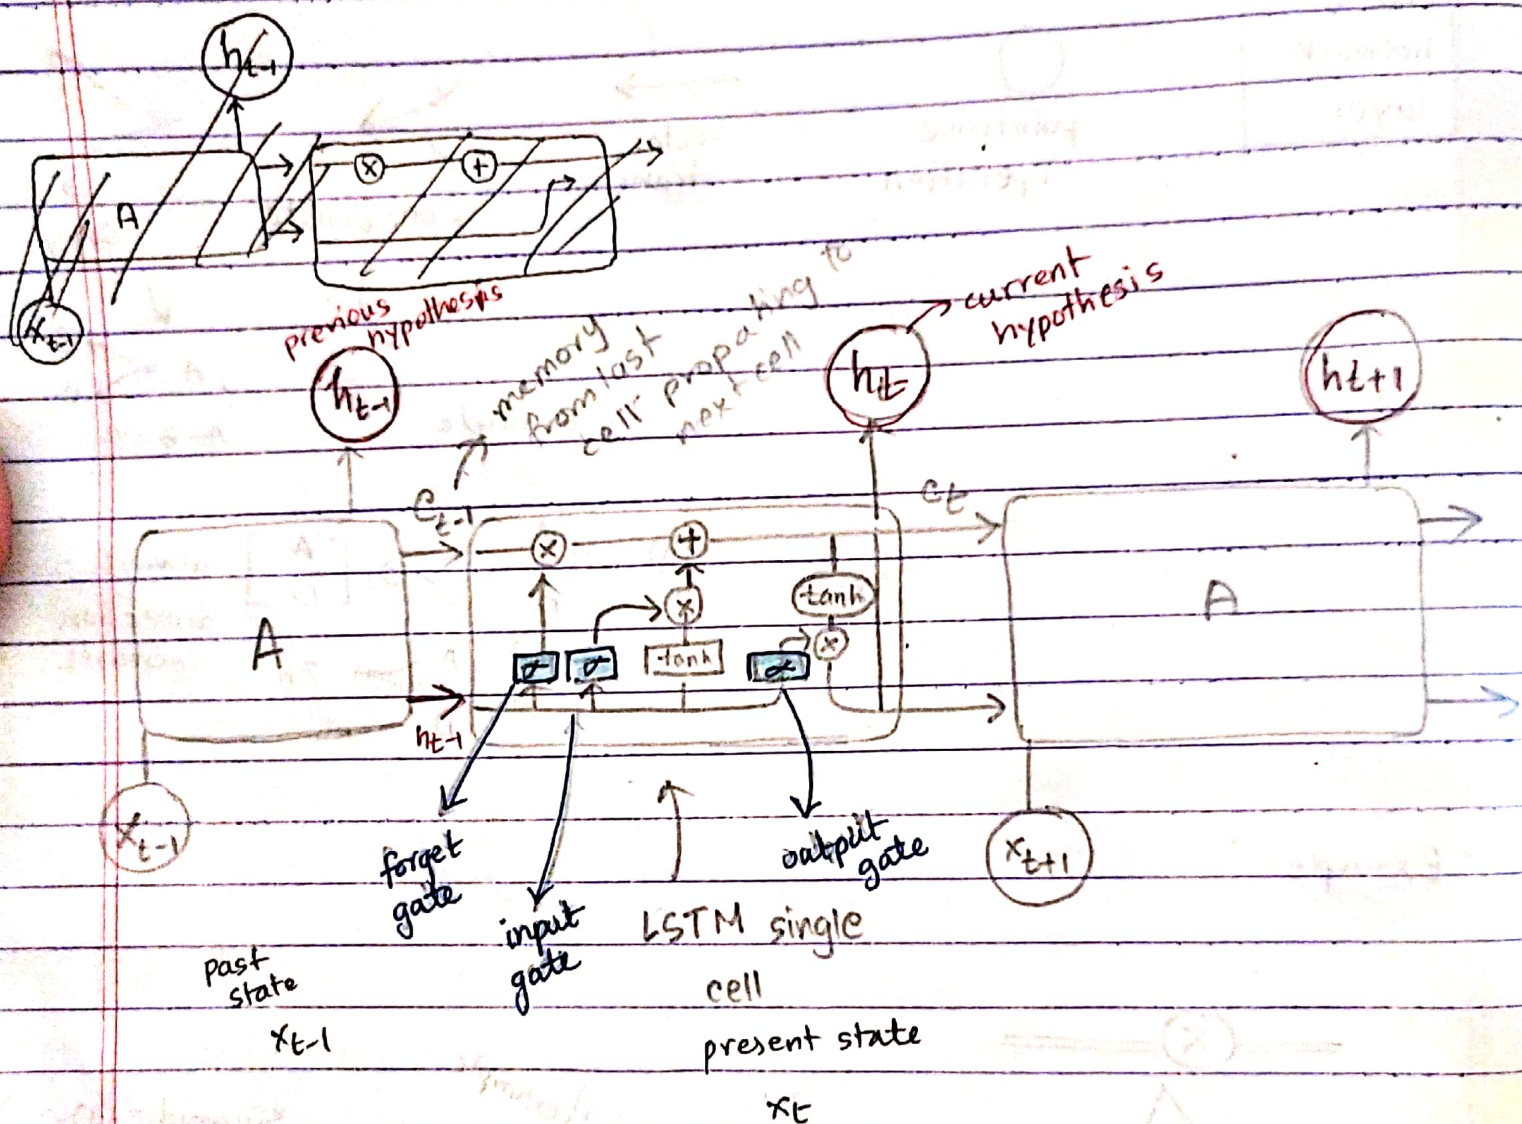 h_{t-1}
× +
A
x_{t-1}
previous
hypothesis
memory
from last
cell propating to
next cell
current
hypothesis
h_{t-1}
h_t
ht+1
C_{t-1}
C_t
× +
×
tanh
A
A
σ σ tanh σ ×
h_{t-1}
x_{t-1}
x_{t+1}
forget
gate
input
gate
output
gate
LSTM single
cell
past
state
x_{t-1}
present state
x_t